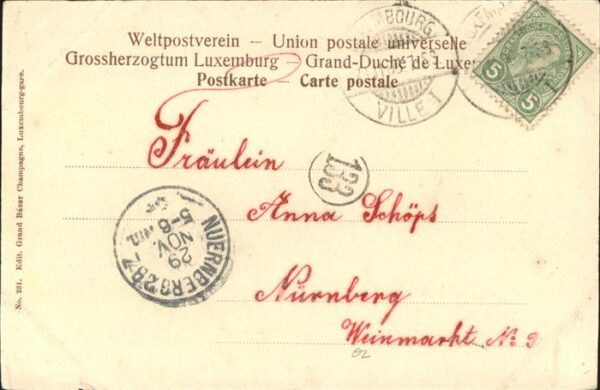 Weltpostverein – Union postale universelle
Grossherzogtum Luxemburg – Grand-Duché de Luxem
Postkarte – Carte postale
VILLE 1
5 5
Fräulein
133
Anna Schöps
Nürnberg
Weinmarkt No 9
NUERNBERG 2 B Z
29
NOV.
5-6
No. 281. Edit. Grand Bazar Champagne, Luxembourg-gare.